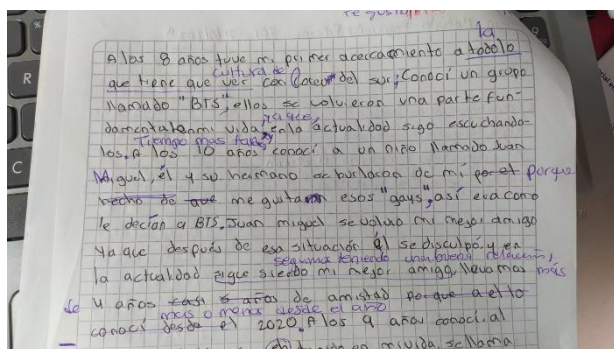 te gusta
la
A los 8 años tuve mi primer acercamiento a todo lo
cultura de
que tiene que ver con Corea del sur; Conocí un grupo
llamado "BTS", ellos se volvieron una parte fun-
ya que,
damental en mi vida, en la actualidad sigo escuchando-
Tiempo mas tarde
los. A los 10 años conocí a un niño llamado Juan
Miguel, él y su hermano se burlaron de mí por el porque
hecho de que me gustaran esos "gays", así era como
le decían a BTS. Juan miguel se volvio mi mejor amigo
ya que después de esa situación él se disculpó y en
seguimos teniendo una buena relación,
la actualidad sigue siendo mi mejor amigo, llevamos más
de 4 años casi 5 años de amistad por que a el lo
más o menos desde el año
conocí desde el 2020. A los 9 años conocí al
en mi vida, se llama